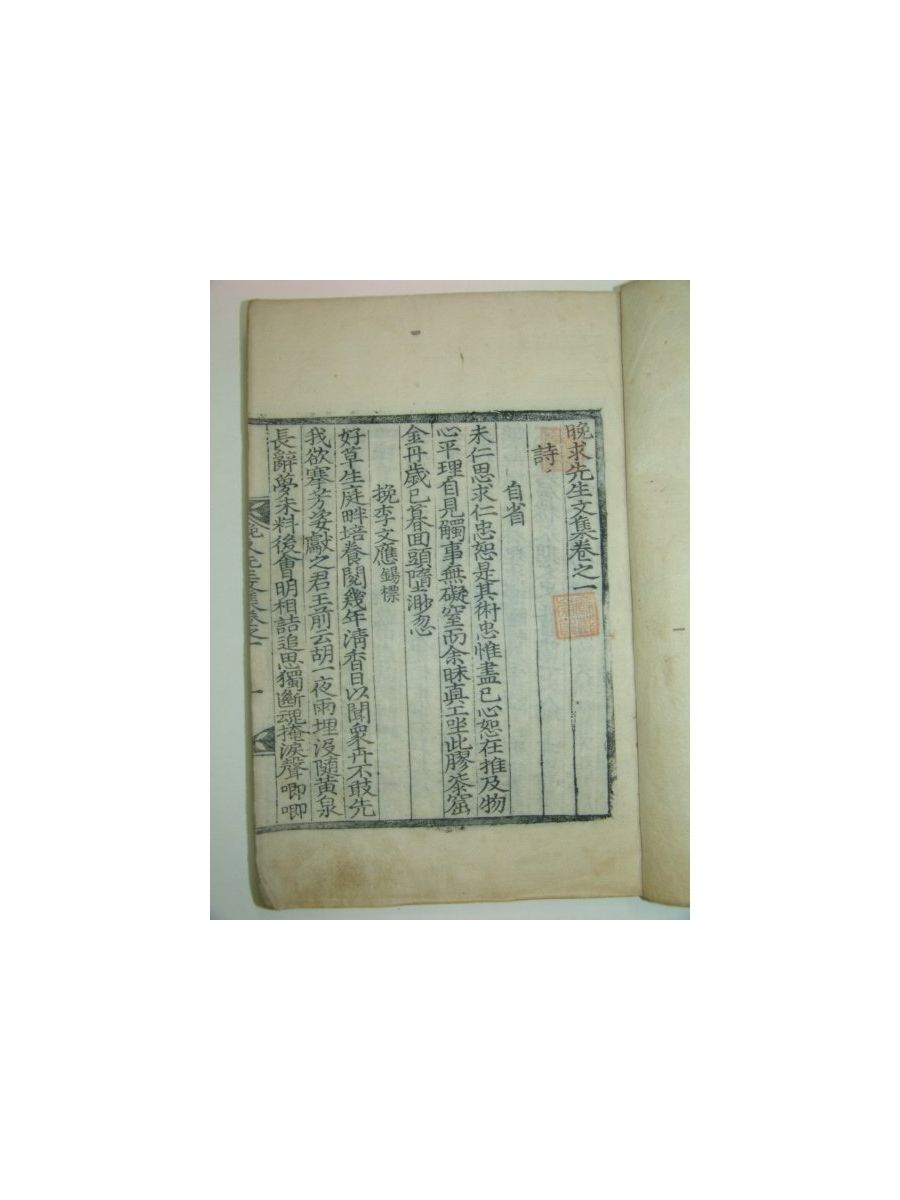 晚求先生文集卷之一
詩
自省
未仁思求仁忠恕是其術忠惟盡已心恕在推及物
心平理自見觸事無礙窒而余昧真工坐此膠漆窟
金丹歲已暮回頭隋渺忽
挽李文應錫標
好草生庭畔培養閱幾年清香日以聞衆卉不敢先
我欲搴芳姿獻之君王前云胡一夜雨埋沒隨黃泉
長辭夢未料後會明相詰追思獨斷魂掩淚聲唧唧